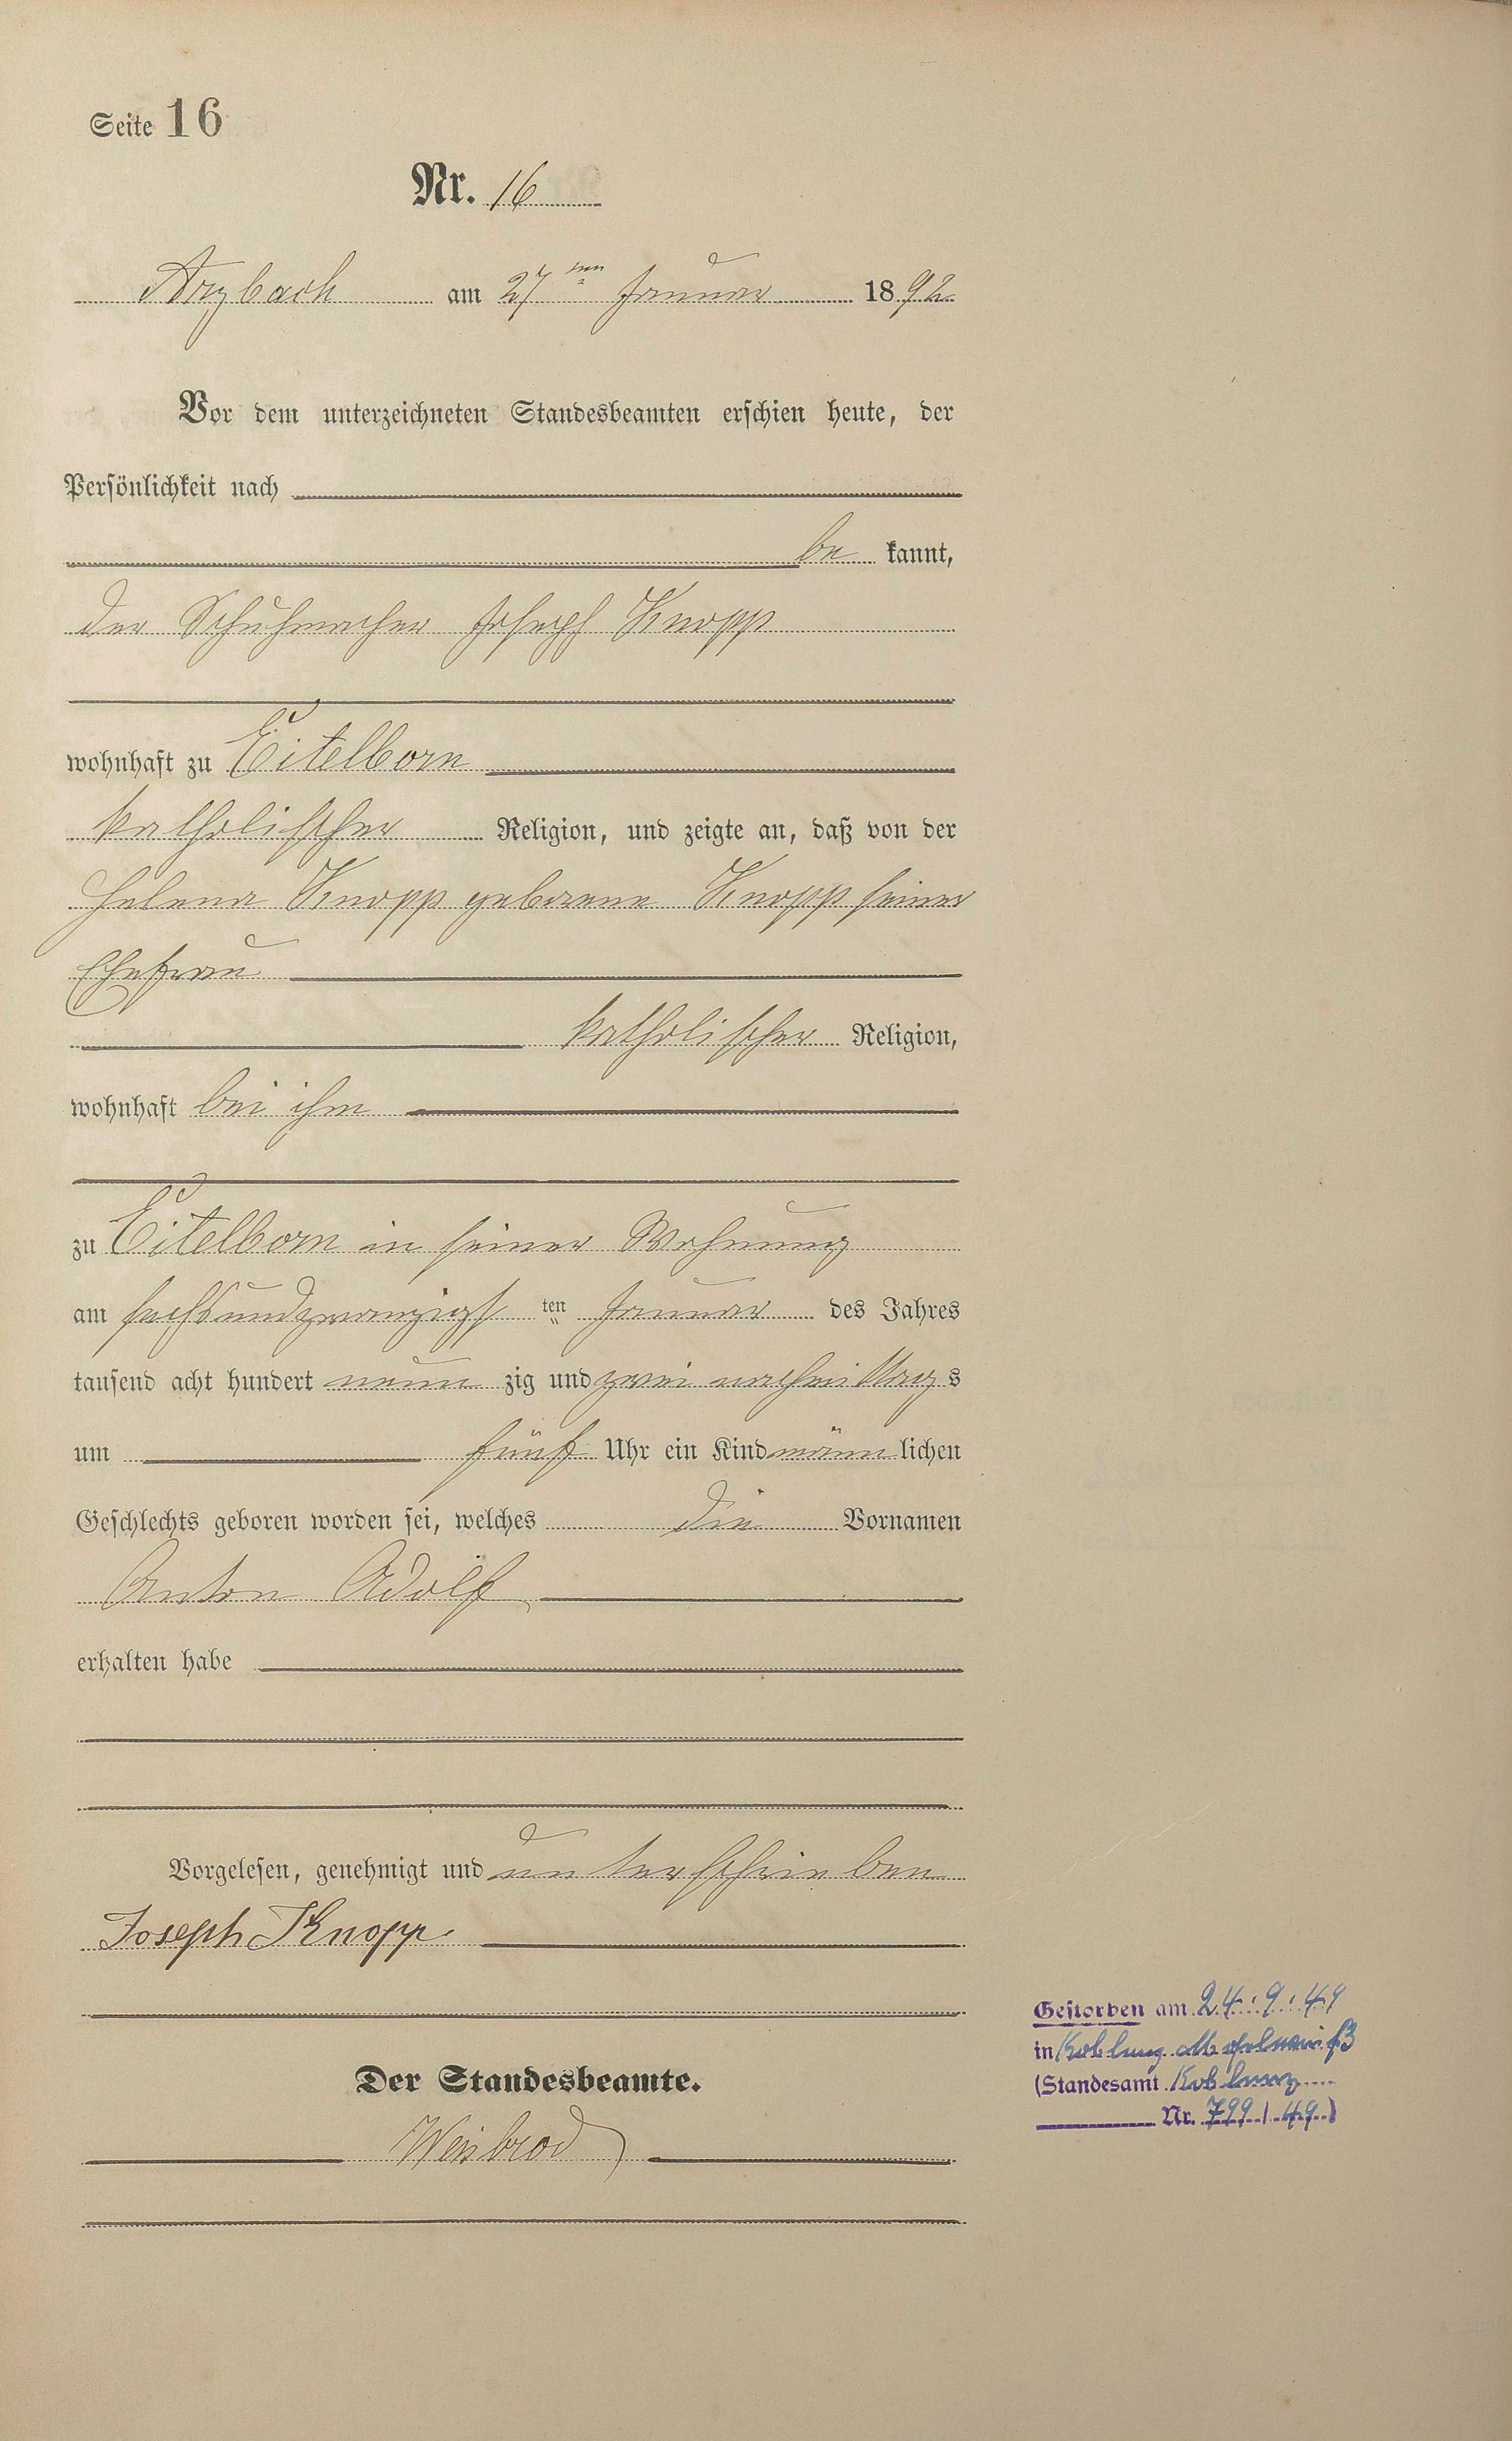 Seite 16
Nr. 16
Arzbach am 27ten Januar 1892
Vor dem unterzeichneten Standesbeamten erschien heute, der
Persönlichkeit nach
be kannt,
der Schuhmacher Joseph Knopp
wohnhaft zu Eitelborn
katholischer Religion, und zeigte an, daß von der
Helena Knopp geborene Knopp seiner
Ehefrau
katholischer Religion,
wohnhaft bei ihm
zu Eitelborn in seiner Wohnung
am sechsundzwanzigsten Januar des Jahres
tausend acht hundert neun zig und zwei nachmittags
um fünf Uhr ein Kind männlichen
Geschlechts geboren worden sei, welches die Vornamen
Anton Adolf
erhalten habe
Vorgelesen, genehmigt und unterschrieben
Joseph Knopp
Der Standesbeamte.
Weisbrod
Gestorben am 24.9.49
in Koblenz
(Standesamt Koblenz
Nr. 799/49)